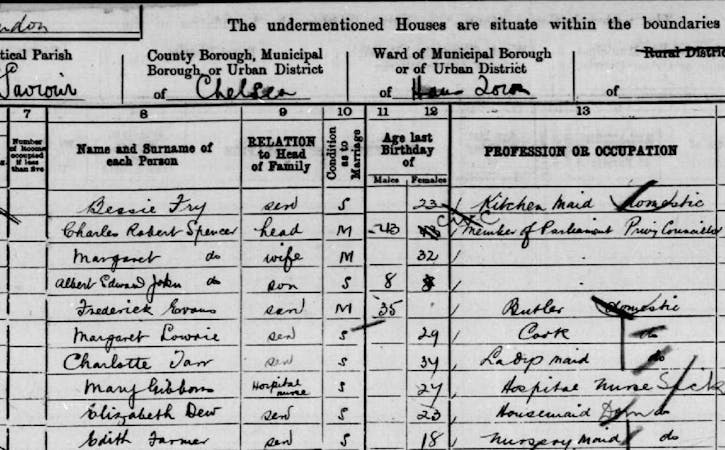 ndon
The undermentioned Houses are situate within the boundaries
tical Parish
County Borough, Municipal Borough, or Urban District
Ward of Municipal Borough or of Urban District
Rural Distric
Saviour
of Chelsea
of Hans Town
of
7 8 9 10 11 12 13
Number of Rooms occupied if less than five
Name and Surname of each Person
RELATION to Head of Family
Condition as to Marriage
Age last Birthday of
Males Females
PROFESSION OR OCCUPATION
Bessie Fry serv S 23 Kitchen Maid domestic
Charles Robert Spencer head M 43 Member of Parliament Privy Councillor
Margaret do wife M 32
Albert Edward John do son S 8
Frederick Evans serv M 35 Butler domestic
Margaret Lowrie serv S 29 Cook do
Charlotte Tarr serv S 34 Ladys maid do
Mary Gibbons Hospital nurse S 27 Hospital Nurse Sick
Elizabeth Dew serv S 23 Housemaid Dom do
Edith Farmer serv S 18 Nursery Maid do